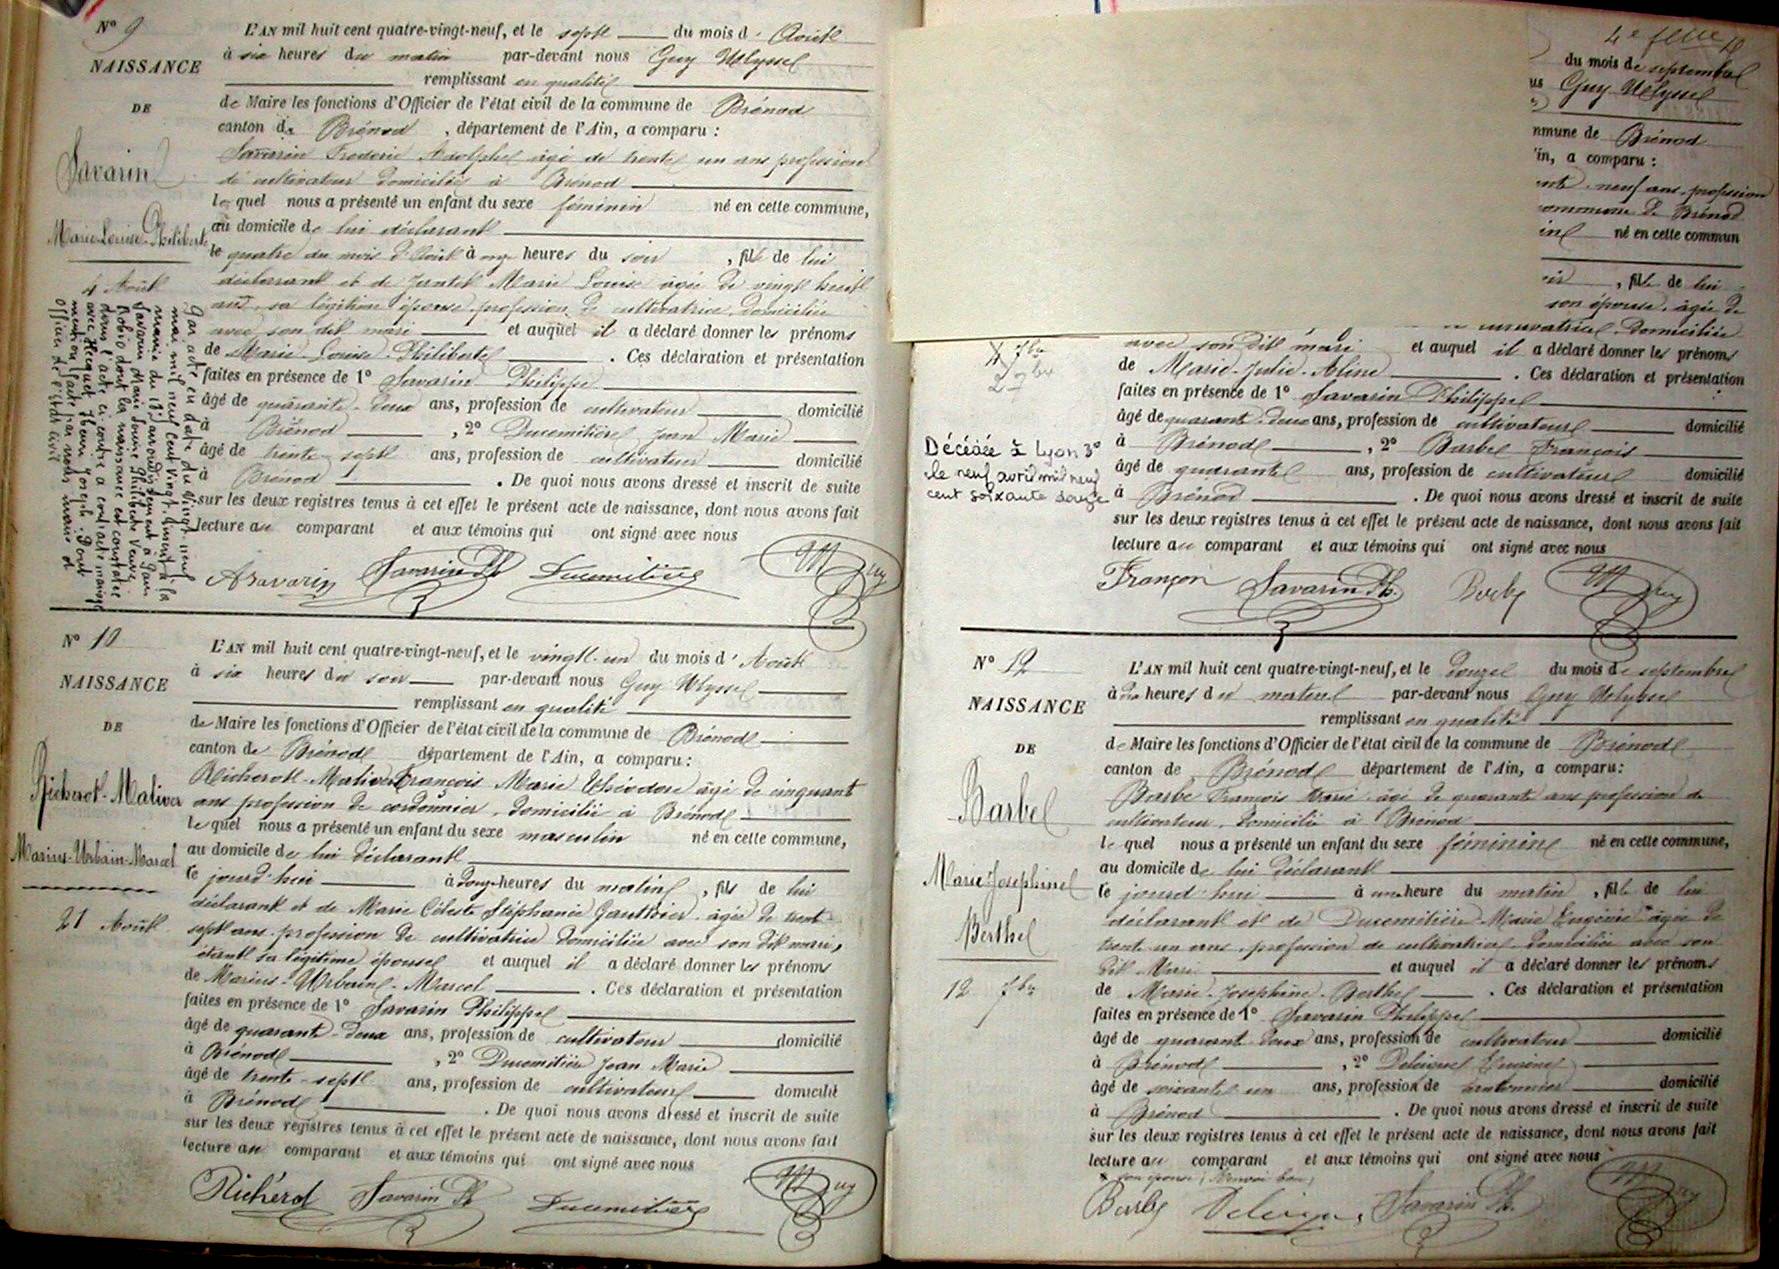 N° 9
NAISSANCE
DE
Savarin
Marie-Louise-Philiberte
4 Août
Par acte en date du vingt neuf
mai mil neuf cent vingt
mairie du 18e arrondissement à Paris
Savarin Marie Louise Philiberte Veuve
Robio dont la naissance est constatée
dans l'acte ci-contre a contracté mariage
avec Hecquet Joseph. Dont
mention faite par nous maire et
officier de l'état civil
L'AN mil huit cent quatre-vingt-neuf, et le sept du mois d'Août
à six heures du matin par-devant nous Guy Ulysse
remplissant en qualité
de Maire les fonctions d'Officier de l'état civil de la commune de Brénod
canton de Brénod, département de l'Ain, a comparu :
Savarin Frederic Adolphe âgé de trente un ans profession
de cultivateur domicilié à Brénod
lequel nous a présenté un enfant du sexe féminin né en cette commune,
au domicile de lui déclarant
le quatre du mois d'Août à onze heures du soir, fille de lui
déclarant et de Marie Louise âgée de vingt huit
ans, sa légitime épouse, profession de cultivatrice, domiciliée
avec son dit mari et auquel il a déclaré donner les prénoms
de Marie-Louise-Philiberte. Ces déclaration et présentation
faites en présence de 1° Savarin Philippe
âgé de quarante-deux ans, profession de cultivateur domicilié
à Brénod, 2° Ducemitière Jean Marie
âgé de trente sept ans, profession de cultivateur domicilié
à Brénod. De quoi nous avons dressé et inscrit de suite
sur les deux registres tenus à cet effet le présent acte de naissance, dont nous avons fait
lecture au comparant et aux témoins qui ont signé avec nous
A Savarin Savarin Ph Ducemitière Guy
N° 10
NAISSANCE
DE
Richerot-Mativer
Marius-Urbain-Marcel
21 Août
L'AN mil huit cent quatre-vingt-neuf, et le vingt-un du mois d'Août
à six heures du soir par-devant nous Guy Ulysse
remplissant en qualité
de Maire les fonctions d'Officier de l'état civil de la commune de Brénod
canton de Brénod département de l'Ain, a comparu :
Richerot-Mativer François Marie Théodore âgé de cinquante
ans profession de cordonnier, domicilié à Brénod
lequel nous a présenté un enfant du sexe masculin né en cette commune,
au domicile de lui déclarant
le jourd'hui à douze heures du matin, fils de lui
déclarant et de Marie Céleste Stéphanie Gauthier âgée de trente
sept ans profession de cultivatrice domiciliée avec son dit mari,
étant sa légitime épouse et auquel il a déclaré donner les prénoms
de Marius-Urbain-Marcel. Ces déclaration et présentation
faites en présence de 1° Savarin Philippe
âgé de quarante-deux ans, profession de cultivateur domicilié
à Brénod, 2° Ducemitière Jean Marie
âgé de trente-sept ans, profession de cultivateur domicilié
à Brénod. De quoi nous avons dressé et inscrit de suite
sur les deux registres tenus à cet effet le présent acte de naissance, dont nous avons fait
lecture au comparant et aux témoins qui ont signé avec nous
Richérot Savarin Ph Ducemitière Guy
4e feuille
du mois de septembre
us Guy Ulysse
mmune de Brénod
in, a comparu :
ente-neuf ans, profession
commune de Brénod
né en cette commun
, fille de lui
son épouse, âgée de
cultivatrice, domiciliée
7bre
2 7bre
Décédée à Lyon 3e
le neuf avril mil neuf
cent soixante douze
avec son dit mari et auquel il a déclaré donner les prénoms
de Marie-Julie-Aline. Ces déclaration et présentation
faites en présence de 1° Savarin Philippe
âgé de quarante-deux ans, profession de cultivateur domicilié
à Brénod, 2° Barbe François
âgé de quarante ans, profession de cultivateur domicilié
à Brénod. De quoi nous avons dressé et inscrit de suite
sur les deux registres tenus à cet effet le présent acte de naissance, dont nous avons fait
lecture au comparant et aux témoins qui ont signé avec nous
Françon Savarin Ph. Barbe Guy
N° 12
NAISSANCE
DE
Barbe
Marie-Josephine
Berthe
12 7bre
L'AN mil huit cent quatre-vingt-neuf, et le douze du mois de septembre
à dix heures du matin par-devant nous Guy Ulysse
remplissant en qualité
de Maire les fonctions d'Officier de l'état civil de la commune de Brénod
canton de Brénod département de l'Ain, a comparu :
Barbe François Marie âgé de quarante ans profession de
cultivateur, domicilié à Brénod
lequel nous a présenté un enfant du sexe féminine né en cette commune,
au domicile de lui déclarant
le jourd'hui à une heure du matin, fille de lui
déclarant et de Ducemitière Marie Eugénie âgée de
trente un ans, profession de cultivatrice domiciliée avec son
dit Mari et auquel il a déclaré donner les prénoms
de Marie-Josephine-Berthe. Ces déclaration et présentation
faites en présence de 1° Savarin Philippe
âgé de quarante deux ans, profession de cultivateur domicilié
à Brénod, 2°
âgé de soixante un ans, profession de cantonnier domicilié
à Brénod. De quoi nous avons dressé et inscrit de suite
sur les deux registres tenus à cet effet le présent acte de naissance, dont nous avons fait
lecture au comparant et aux témoins qui ont signé avec nous
son épouse, Renvoi bon,
Barbe Savarin Ph. Guy